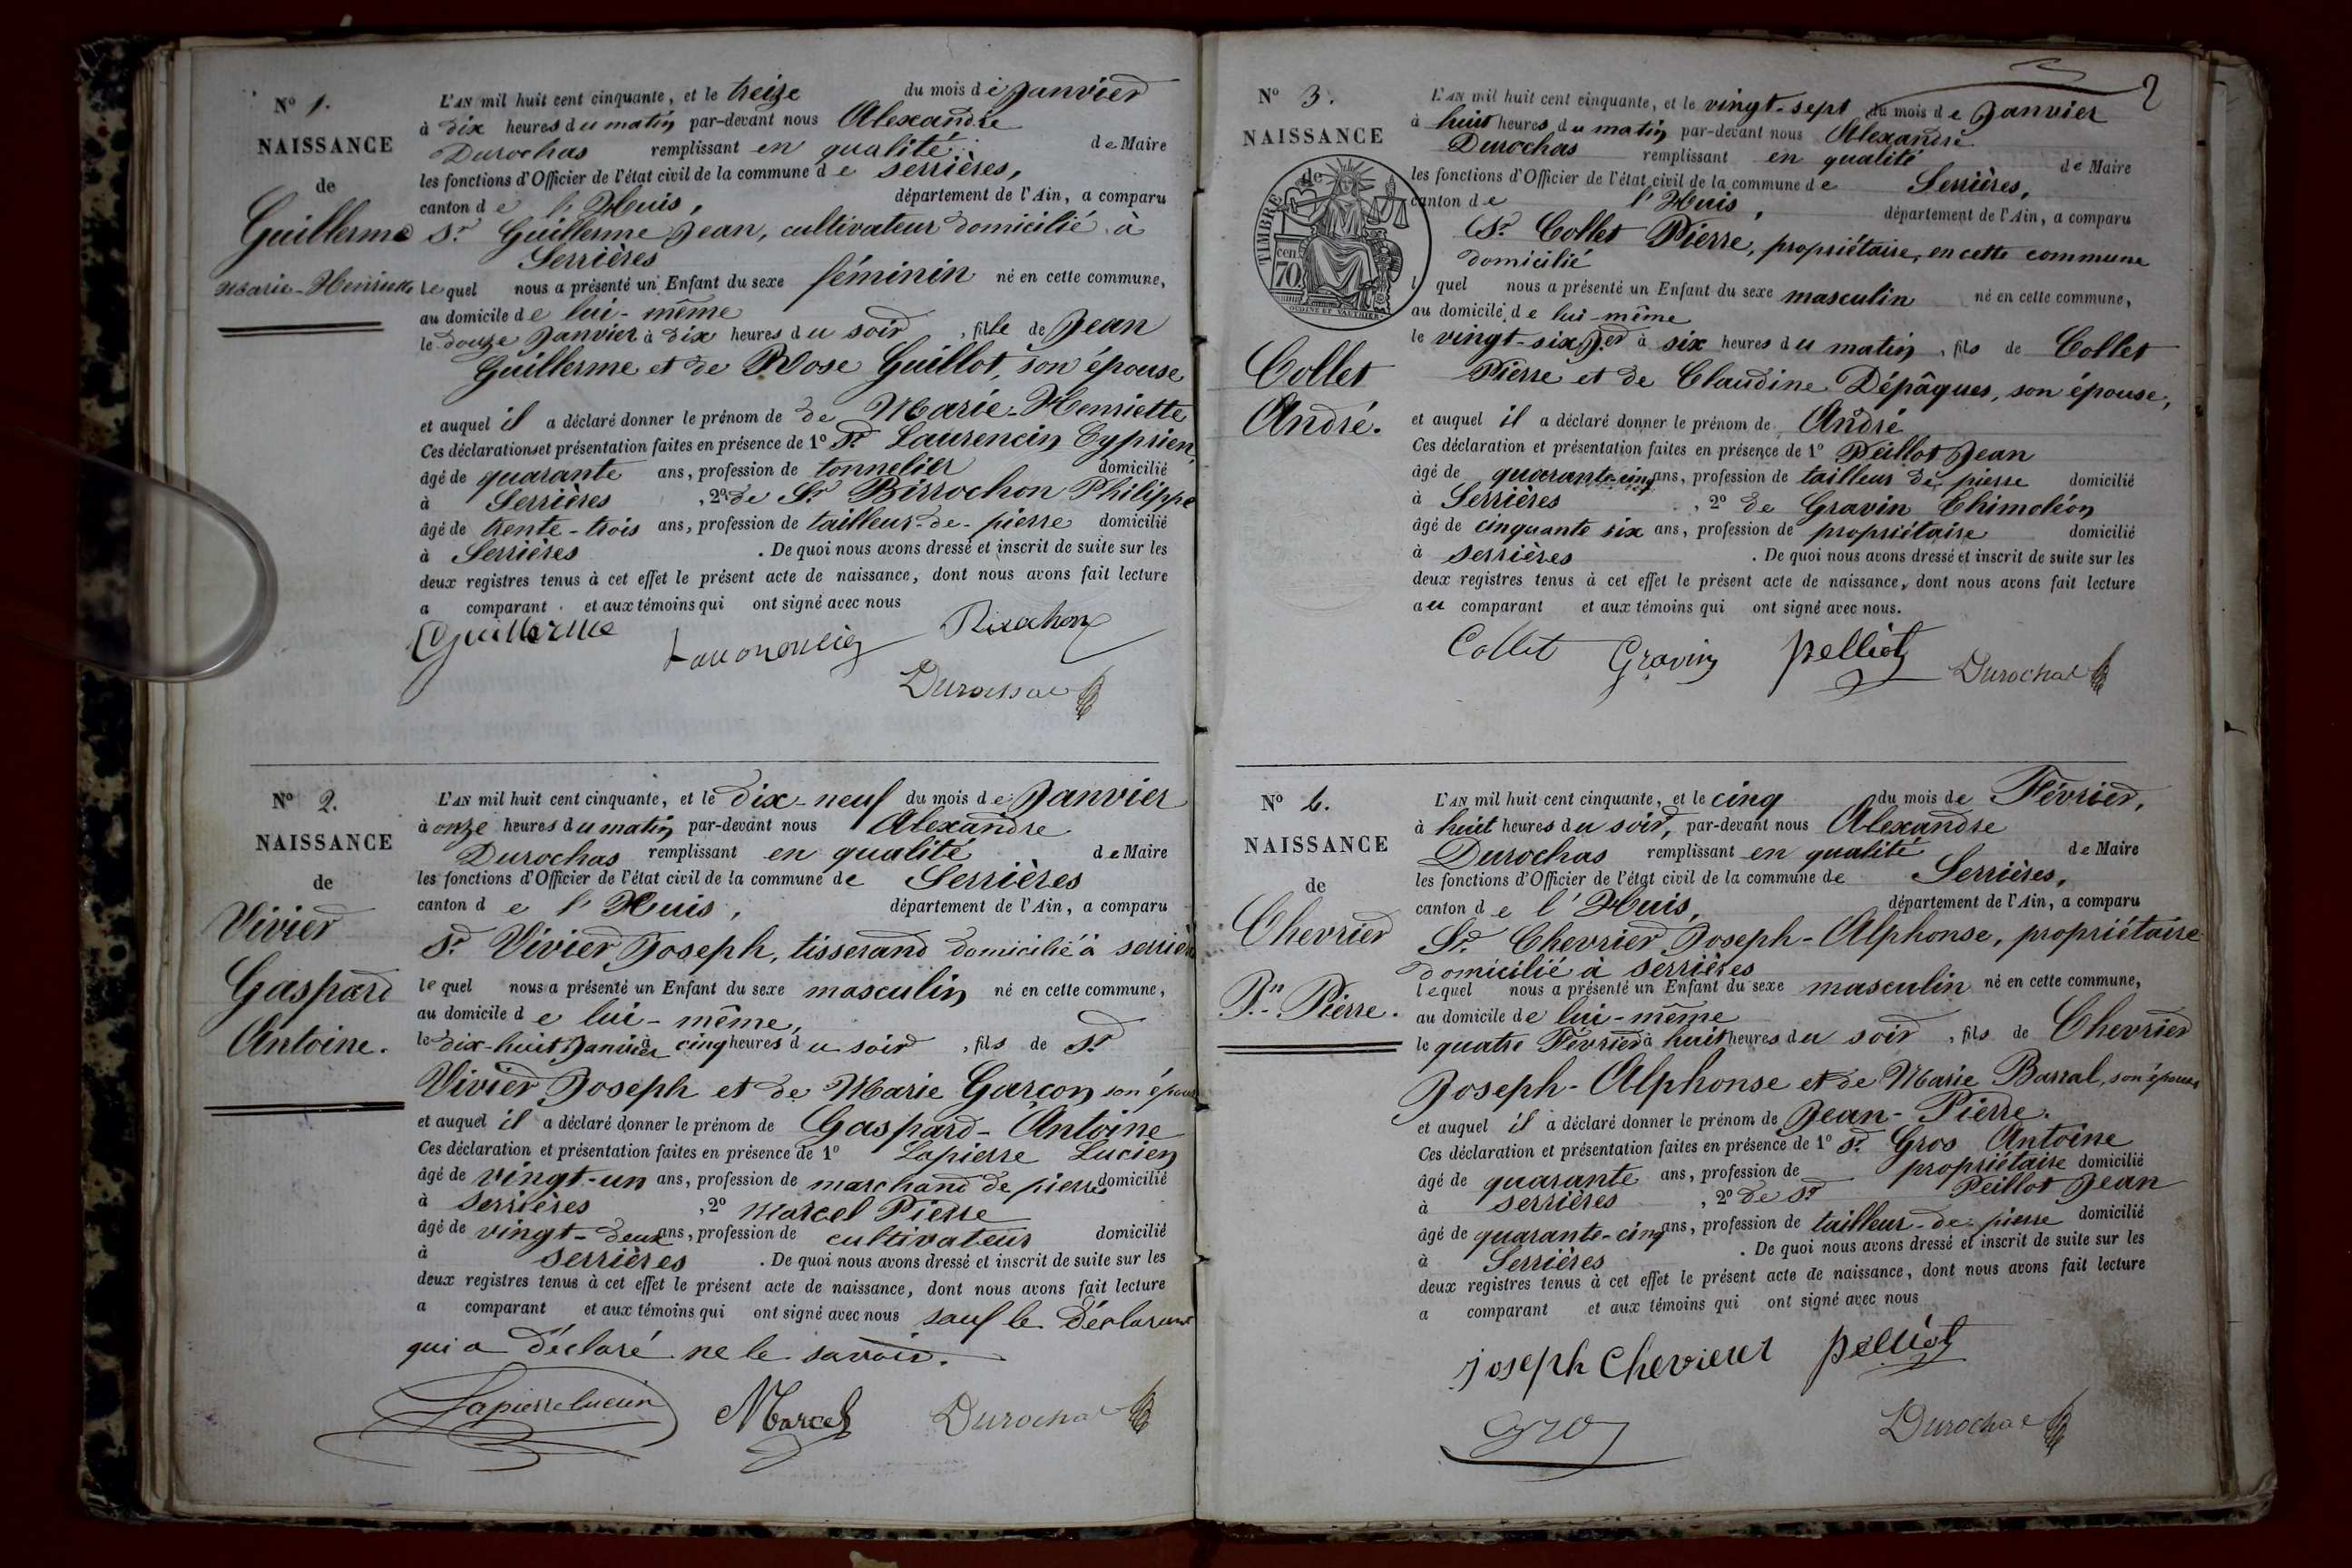 N° 1.
NAISSANCE
de
Guillerme
Marie-Henriette
L'AN mil huit cent cinquante, et le treize du mois de Janvier
à dix heures du matin par-devant nous Alexandre
Durochas remplissant en qualité de Maire
les fonctions d'Officier de l'état civil de la commune de serrières,
canton de l'Huis, département de l'Ain, a comparu
Sr Guillerme Jean, cultivateur domicilié à
Serrières
lequel nous a présenté un Enfant du sexe féminin né en cette commune,
au domicile de lui-même
le douze Janvier à dix heures du soir, fille de Jean
Guillerme et de Rose Guillot, son épouse
et auquel il a déclaré donner le prénom de de Marie-Henriette
Ces déclarations et présentation faites en présence de 1° Sr Laurencin Cyprien,
âgé de quarante ans, profession de tonnelier domicilié
à Serrières, 2° de Sr Birrochon Philippe
âgé de trente-trois ans, profession de tailleur-de-pierre domicilié
à Serrières. De quoi nous avons dressé et inscrit de suite sur les
deux registres tenus à cet effet le présent acte de naissance, dont nous avons fait lecture
a comparant et aux témoins qui ont signé avec nous
Guillerme
Durochas
N° 2.
NAISSANCE
de
Vivier
Gaspard
Antoine.
L'AN mil huit cent cinquante, et le dix-neuf du mois de Janvier
à onze heures du matin par-devant nous Alexandre
Durochas remplissant en qualité de Maire
les fonctions d'Officier de l'état civil de la commune de Serrières
canton de l'Huis, département de l'Ain, a comparu
Sr Vivier Joseph, tisserand domicilié à serrières
lequel nous a présenté un Enfant du sexe masculin né en cette commune,
au domicile de lui-même,
le dix-huit Janvier à cinq heures du soir, fils de Sr
Vivier Joseph et de Marie Garçon son épouse
et auquel il a déclaré donner le prénom de Gaspard-Antoine
Ces déclaration et présentation faites en présence de 1° Lapierre Lucien
âgé de vingt-un ans, profession de marchand de pierres domicilié
à serrières, 2° Marcel Pierre
âgé de vingt-deux ans, profession de cultivateur domicilié
à serrières. De quoi nous avons dressé et inscrit de suite sur les
deux registres tenus à cet effet le présent acte de naissance, dont nous avons fait lecture
a comparant et aux témoins qui ont signé avec nous sauf le déclarant
qui a déclaré ne le savoir.
Lapierre lucien Marcel Durochas
2
N° 3.
NAISSANCE
de
TIMBRE
70 cen
OUDINÉ ET VAUTHIER
Collet
André.
L'AN mil huit cent cinquante, et le vingt-sept du mois de Janvier
à huit heures du matin par-devant nous Alexandre
Durochas remplissant en qualité de Maire
les fonctions d'Officier de l'état civil de la commune de Serrières,
canton de l'Huis, département de l'Ain, a comparu
Sr Collet Pierre, propriétaire, en cette commune
domicilié
lquel nous a présenté un Enfant du sexe masculin né en cette commune,
au domicile de lui-même
le vingt-six Jer à six heures du matin, fils de Collet
Pierre et de Claudine Dépâques, son épouse,
et auquel il a déclaré donner le prénom de André
Ces déclaration et présentation faites en présence de 1° Peillot Jean
âgé de quarante-cinq ans, profession de tailleur de pierre domicilié
à Serrières, 2° de Gravin Thimoléon
âgé de cinquante six ans, profession de propriétaire domicilié
à serrières. De quoi nous avons dressé et inscrit de suite sur les
deux registres tenus à cet effet le présent acte de naissance, dont nous avons fait lecture
au comparant et aux témoins qui ont signé avec nous.
Collet Gravin pelliot Durochas
N° 4.
NAISSANCE
de
Chevrier
Jn-Pierre.
L'AN mil huit cent cinquante, et le cinq du mois de Février,
à huit heures du soir, par-devant nous Alexandre
Durochas remplissant en qualité de Maire
les fonctions d'Officier de l'état civil de la commune de Serrières,
canton de l'Huis, département de l'Ain, a comparu
Sr Chevrier Joseph-Alphonse, propriétaire
domicilié à serrières
lequel nous a présenté un Enfant du sexe masculin né en cette commune,
au domicile de lui-même
le quatre Février à huit heures du soir, fils de Chevrier
Joseph-Alphonse et de Marie Barral, son épouse
et auquel il a déclaré donner le prénom de Jean-Pierre.
Ces déclaration et présentation faites en présence de 1° Sr Gros Antoine
âgé de quarante ans, profession de propriétaire domicilié
à serrières, 2° de Sr Peillot Jean
âgé de quarante-cinq ans, profession de tailleur-de-pierre domicilié
à Serrières. De quoi nous avons dressé et inscrit de suite sur les
deux registres tenus à cet effet le présent acte de naissance, dont nous avons fait lecture
a comparant et aux témoins qui ont signé avec nous
joseph Chevrier pelliot
gros Durochas